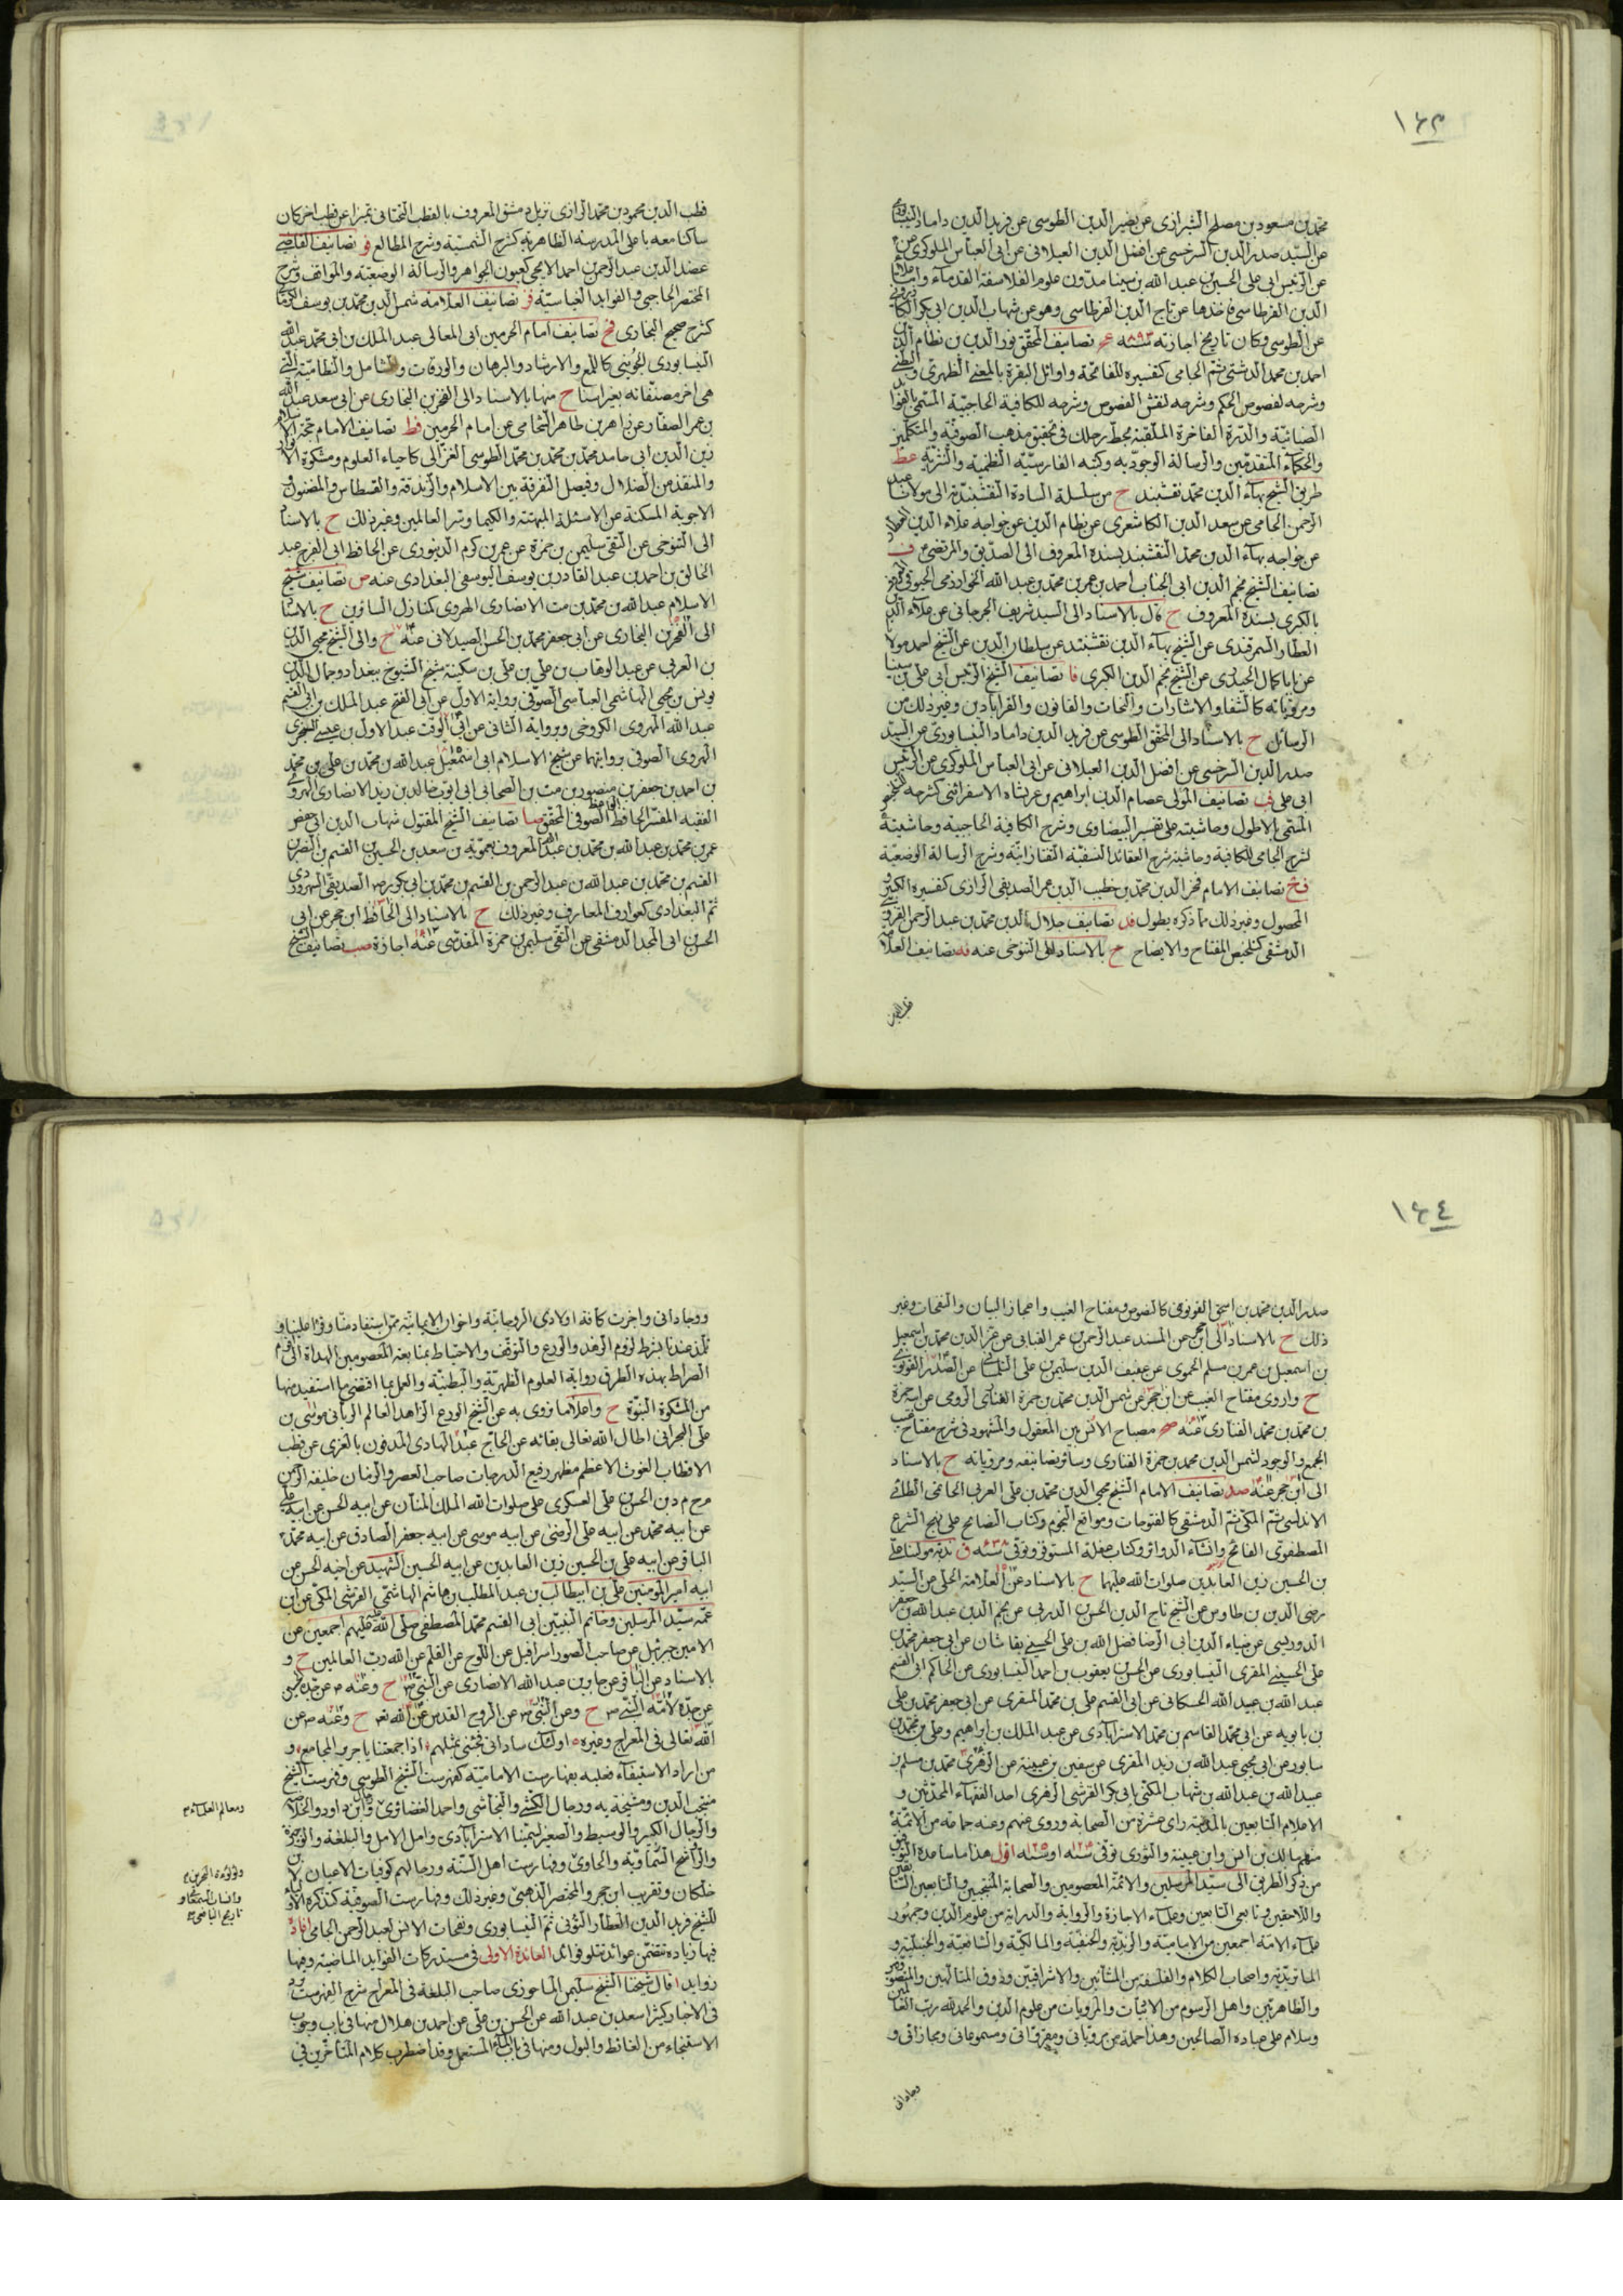 ١٤٣
محمد بن مسعود بن مصلح الشيرازى عن نصير الدين الطوسى عن فريد الدين داماد النيسابورى
عن السيد صدر الدين السرخسى عن افضل الدين الغيلانى عن ابى العباس اللوكرى
عن الرئيس ابى على الحسين بن عبد الله بن سينا مدون علوم الفلاسفة القدماء
الدين الفرطاسى فاخذها عن تاج الدين الفرطاسى وهو عن شهاب الدين ابى بكر
عن الطوسى وكان تاريخ اجازته ٨٩٣ سنه تصانيف المحقق نور الدين بن نظام الدين
احمد بن محمد الدشتى ثم الجامى كتفسيره للفاتحة واوائل البقرة بالمعنى الظهرى والبطنى
وشرحه لفصوص الحكم وشرحه لنقش الفصوص وشرحه للكافية الحاجبية المسمى بالفوائد
الضيائية والدرة الفاخرة الملقبة بحط رحلك فى تحقيق مذهب الصوفية والمتكلمين
والحكماء المتقدمين والرسالة الوجودية وكتبه الفارسية النظمية والنثرية عط
طريق الشيخ بهاء الدين محمد نقشبند ح من سلسلة السادة النقشبندية الى مولانا عبد
الرحمن الجامى عن سعد الدين الكاشغرى عن نظام الدين عن خواجه علاء الدين العطار
عن خواجه بهاء الدين محمد النقشبند بسنده المعروف الى الصديق والمرتضى ف
تصانيف الشيخ نجم الدين ابى الجناب احمد بن عمر بن محمد بن عبد الله الخوارزمى الخيوقى
بالكبرى بسنده المعروف ح قال بالاسناد الى السيد شريف الجرجانى عن علاء الدين
العطار السمرقندى عن الشيخ بهاء الدين نقشبند عن سلطان الدين عن الشيخ احمد مولانا
عن بابا كمال الجندى عن الشيخ نجم الدين الكبرى فا تصانيف الشيخ الرئيس ابى على بن سينا
ومروياته كالشفا والاشارات والنجات والقانون والقرابادين وغير ذلك من
الرسائل ح بالاسناد الى المحقق الطوسى عن فريد الدين داماد النيسابورى عن السيد
صدر الدين السرخسى عن افضل الدين الغيلانى عن ابى العباس اللوكرى عن الرئيس
ابى على فب تصانيف المولى عصام الدين ابراهيم بن عربشاه الاسفرائنى كشرحه للتلخيص
المسمى بالاطول وحاشيته على تفسير البيضاوى وشرح الكافية الحاجبية وحاشيته
لشرح الجامى للكافية وحاشية شرح العقائد النسفية التفتازانية وشرح الرسالة الوضعية
فج تصانيف الامام فخر الدين محمد بن خطيب الدين عمر الصديقى الرازى كتفسيره الكبير و
المحصول وغير ذلك مما ذكره يطول فد تصانيف جلال الدين محمد بن عبد الرحمن القزوينى
الدمشقى كتلخيص المفتاح والايضاح ح بالاسناد الى التنوخى عنه فه تصانيف العلامة
قطب الدين
قطب الدين محمود بن محمد الرازى نزيل دمشق المعروف بالقطب التحتانى تميزا عن قطب اخر كان
ساكنا معه باعلى المدرسة الظاهرية كشرح الشمسية وشرح المطالع فو تصانيف القاضى
عضد الدين عبد الرحمن بن احمد الايجى كعيون الجواهر والرسالة الوضعية والمواقف وشرح
المختصر الحاجبى والفوائد الغياثية فز تصانيف العلامة شمس الدين محمد بن يوسف الكرمانى
كشرح صحيح البخارى فح تصانيف امام الحرمين ابى المعالى عبد الملك بن ابى محمد عبد الله
النيسابورى الجوينى كاللمع والارشاد والبرهان والورقات والشامل والنظامية التى
هى اخر مصنفاته بغير اسنا ح منها بالاسناد الى الفخر بن البخارى عن ابى سعد عبد الله
بن عمر الصفار عن زاهر بن طاهر الشحامى عن امام الحرمين فط تصانيف الامام حجة الاسلام
زين الدين ابى حامد محمد بن محمد بن محمد الطوسى الغزالى كاحياء العلوم ومشكوة الانوار
والمنقذ من الضلال وفيصل التفرقة بين الاسلام والزندقة والقسطاس والمضنون و
الاجوبة المسكتة عن الاسئلة المبهتة والكيميا وسر العالمين وغير ذلك ح بالاسناد
الى التنوخى عن التقى سليمن بن حمزة عن عمر بن كرم الدينورى عن الحافظ ابى الفرج عبد
الخالق بن احمد بن عبد القادر بن يوسف اليوسفى البغدادى عنه ص تصانيف شيخ
الاسلام عبد الله بن محمد بن مت الانصارى الهروى كمنازل السائرين ح بالاسناد
الى الفخر بن البخارى عن ابى جعفر محمد بن الحسن الصيدلانى عنه ح والى الشيخ محيى الدين
بن العربى عن عبد الوهاب بن على بن على بن سكينة شيخ الشيوخ ببغداد وجمال الدين
يونس بن يحيى الهاشمى العباسى الصوفى رواية الاول عن ابى الفتح عبد الملك بن ابى القسم
عبد الله الهروى الكروخى وبرواية الثانى عن ابى الوقت عبد الاول بن عيسى السجزى
الهروى الصوفى بروايتهما عن شيخ الاسلام ابى اسمعيل عبد الله بن محمد بن على بن محمد
بن احمد بن جعفر بن منصور بن مت بن الصحابى ابى ايوب خالد بن زيد الانصارى الهروى
الفقيه المفسر الحافظ الصوفى المحقق صا تصانيف الشيخ المقتول شهاب الدين ابى حفص
عمر بن محمد بن عبد الله بن محمد بن عبد الله المعروف بعمويه بن سعد بن الحسين بن القسم بن النضر بن
القسم بن محمد بن عبد الله بن عبد الرحمن بن القسم بن محمد بن ابى بكر رض الصديقى السهروردى
ثم البغدادى كعوارف المعارف وغير ذلك ح بالاسناد الى الحافظ ابن حجر عن ابى
الحسن بن ابى المجد الدمشقى عن التقى سليمن بن حمزة المقدسى عنه اجازة صب تصانيف الشيخ
١٤٤
صدر الدين محمد بن اسحق القونوى كالنصوص ومفتاح الغيب واعجاز البيان والنفحات وغير
ذلك ح بالاسناد الى ابن حجر عن المسند عبد الرحمن بن عمر القبابى عن عز الدين محمد بن اسمعيل
بن اسمعيل بن عمر بن مسلم الحموى عن عفيف الدين سليمن بن على التلمسانى عن الصدر القونوى
ح واروى مفتاح الغيب عن ابن حجر عن شمس الدين محمد بن حمزة الفنارى الرومى عن ابيه حمزة
بن محمد بن محمد الفنارى عنه صج مصباح الانس بين المعقول والمشهود فى شرح مفتاح غيب
الجمع والوجود لشمس الدين محمد بن حمزة الفنارى وسائر تصانيفه ومروياته ح بالاسناد
الى ابن حجر عنه صد تصانيف الامام الشيخ محيى الدين محمد بن على العربى الحاتمى الطائى
الاندلسى ثم المكى ثم الدمشقى كالفتوحات ومواقع النجوم وكتاب النصائح على نهج الشرع
المصطفوى الفاتح وانشاء الدوائر وكتاب عقلة المستوفز وتوفى ٦٣٨ سنه ق ندبة مولينا على
بن الحسين زين العابدين صلوات الله عليهما ح بالاسناد عن العلامة الحلى عن السيد
رضى الدين بن طاوس عن الشيخ تاج الدين الحسن بن الدربى عن نجم الدين عبد الله بن جعفر
الدوريستى عن ضياء الدين ابى الرضا فضل الله بن على الحسينى بقاشان عن ابى جعفر محمد بن
على الحسينى المقرى النيسابورى عن الحسن بن يعقوب بن احمد النيسابورى عن الحاكم ابى القسم
عبد الله بن عبيد الله الحسكانى عن ابى القسم على بن محمد المقرى عن ابى جعفر محمد بن على
بن بابويه عن ابى محمد القاسم بن محمد الاسترابادى عن عبد الملك بن ابراهيم وعلى بن محمد بن
سابور عن ابى يحيى عبد الله بن زيد المقرى عن سفين بن عيينة عن الزهرى محمد بن مسلم بن
عبيد الله بن عبد الله بن شهاب المكنى بابى بكر القرشى الزهرى احد الفقهاء المحدثين و
الاعلام التابعين بالمدينة راى عشرة من الصحابة وروى عنهم وعنه جماعة من الائمة
منهم مالك بن انس وابن عيينة والثورى توفى سنه ١٢٤ او سنه ١٢٥ اقول هذا ما ساعده التوفيق
من ذكر الطرق الى سيد المرسلين والائمة المعصومين والصحابة المنتجبين والتابعين السابقين
واللاحقين وتابعى التابعين وعلماء الاجازة والرواية والدراية من علوم الدين وجمهور
علماء الامة اجمعين من الامامية والزيدية والحنفية والمالكية والشافعية والحنبلية و
الماتريدية واصحاب الكلام والفلسفة من المشائين والاشراقيين وذوق المتالهين والمتصوفين
والظاهريين واهل الرسوم من الاثبات والمرويات من علوم الدين والحمد لله رب العالمين
وسلام على عباده الصالحين وهذا جملة من مروياتى ومقرواتى ومسموعاتى ومجازاتى و
وجاداتى
ووجاداتى واخبرت كافة اولادى الروحانية واخوان الايمانية ممن استفاد منا وقرأ علينا و
تلمذ عندنا بشرط لزوم الزهد والورع والتوقف والاحتياط بمتابعة المعصومين الهداة الى اقوم
الصراط بهذه الطرق رواية العلوم الظهرية والبطنية والعمل بما اقتضى ما استفيد منها
من المشكوة النبوة ح واعلا ما نروى به عن الشيخ الورع الزاهد العالم الربانى موسى بن
على البحرانى اطال الله تعالى بقائه عن الحاج عبد الهادى المدفون بالغرى عن قطب
الاقطاب الغوث الاعظم مظهر رفيع الدرجات صاحب العصر والزمان خليفة الرحمن
م ح م د بن الحسن بن على العسكرى على صلوات الله الملك المنان عن ابيه الحسن عن ابيه على
عن ابيه محمد عن ابيه على الرضى عن ابيه موسى عن ابيه جعفر الصادق عن ابيه محمد
الباقر عن ابيه على بن الحسين زين العابدين عن ابيه الحسين الشهيد عن اخيه الحسن عن
ابيه امير المومنين على بن ابيطالب بن عبد المطلب بن هاشم الهاشمى القرشى المكى عن ابن
عمه سيد المرسلين وخاتم النبيين ابى القسم محمد المصطفى صلى الله عليهم اجمعين عن
الامين جبرئيل عن صاحب الصور اسرافيل عن اللوح عن القلم عن الله رب العالمين ح و
بالاسناد عن الباقر عن جابر بن عبد الله الانصارى عن النبى ص ح وعنه عن جده
عن جدة لامه النبى ص ح وعن النبى ص عن الروح القدس عن الله تعالى ح وعنه ص عن
الله تعالى فى المعراج وغيره اولئك ساداتى فجئنى بمثلهم اذا جمعتنا يا جرير المجامع و
من اراد الاستيفاء فعليه بفهارست الامامية كفهرست الشيخ الطوسى وفهرست الشيخ
منتجب الدين ومشيخة به ورجال الكشى والنجاشى واحمد الغضاوى وابن داود والخلاصة
والرجال الكبير والوسيط والصغير لميرزا الاسترابادى وامل الامل والبلغة والوجيزة
والرواشح السماوية والحاوى وفهارست اهل السنة ورجالهم كوفيات الاعيان لابن
خلكان وتقريب ابن حجر والمختصر الذهبى وغير ذلك وفهارست الصوفية كتذكرة الاولياء
للشيخ فريد الدين العطار التونى ثم النيسابورى ونفحات الانس لعبد الرحمن الجامى افادة
فيها زيادة تتضمن عوائد تتلو فوائد العائدة الاولى فى مستدركات الفوايد الماضية وفيها
زوايد ا قال شيخنا الشيخ سليمن الماحوزى صاحب البلغة فى المعراج شرح الفهرست ورد
فى الاخبار كثيرا سعد بن عبد الله عن الحسن بن على عن احمد بن هلال منها فى باب وجوب
الاستنجاء من الغائط والبول ومنها فى باب الماء المستعمل وقد اضطرب كلام المتأخرين فى
ومعالم العلماء
ولؤلؤة البحرين
وانساب السمعانى و
تاريخ اليافعى